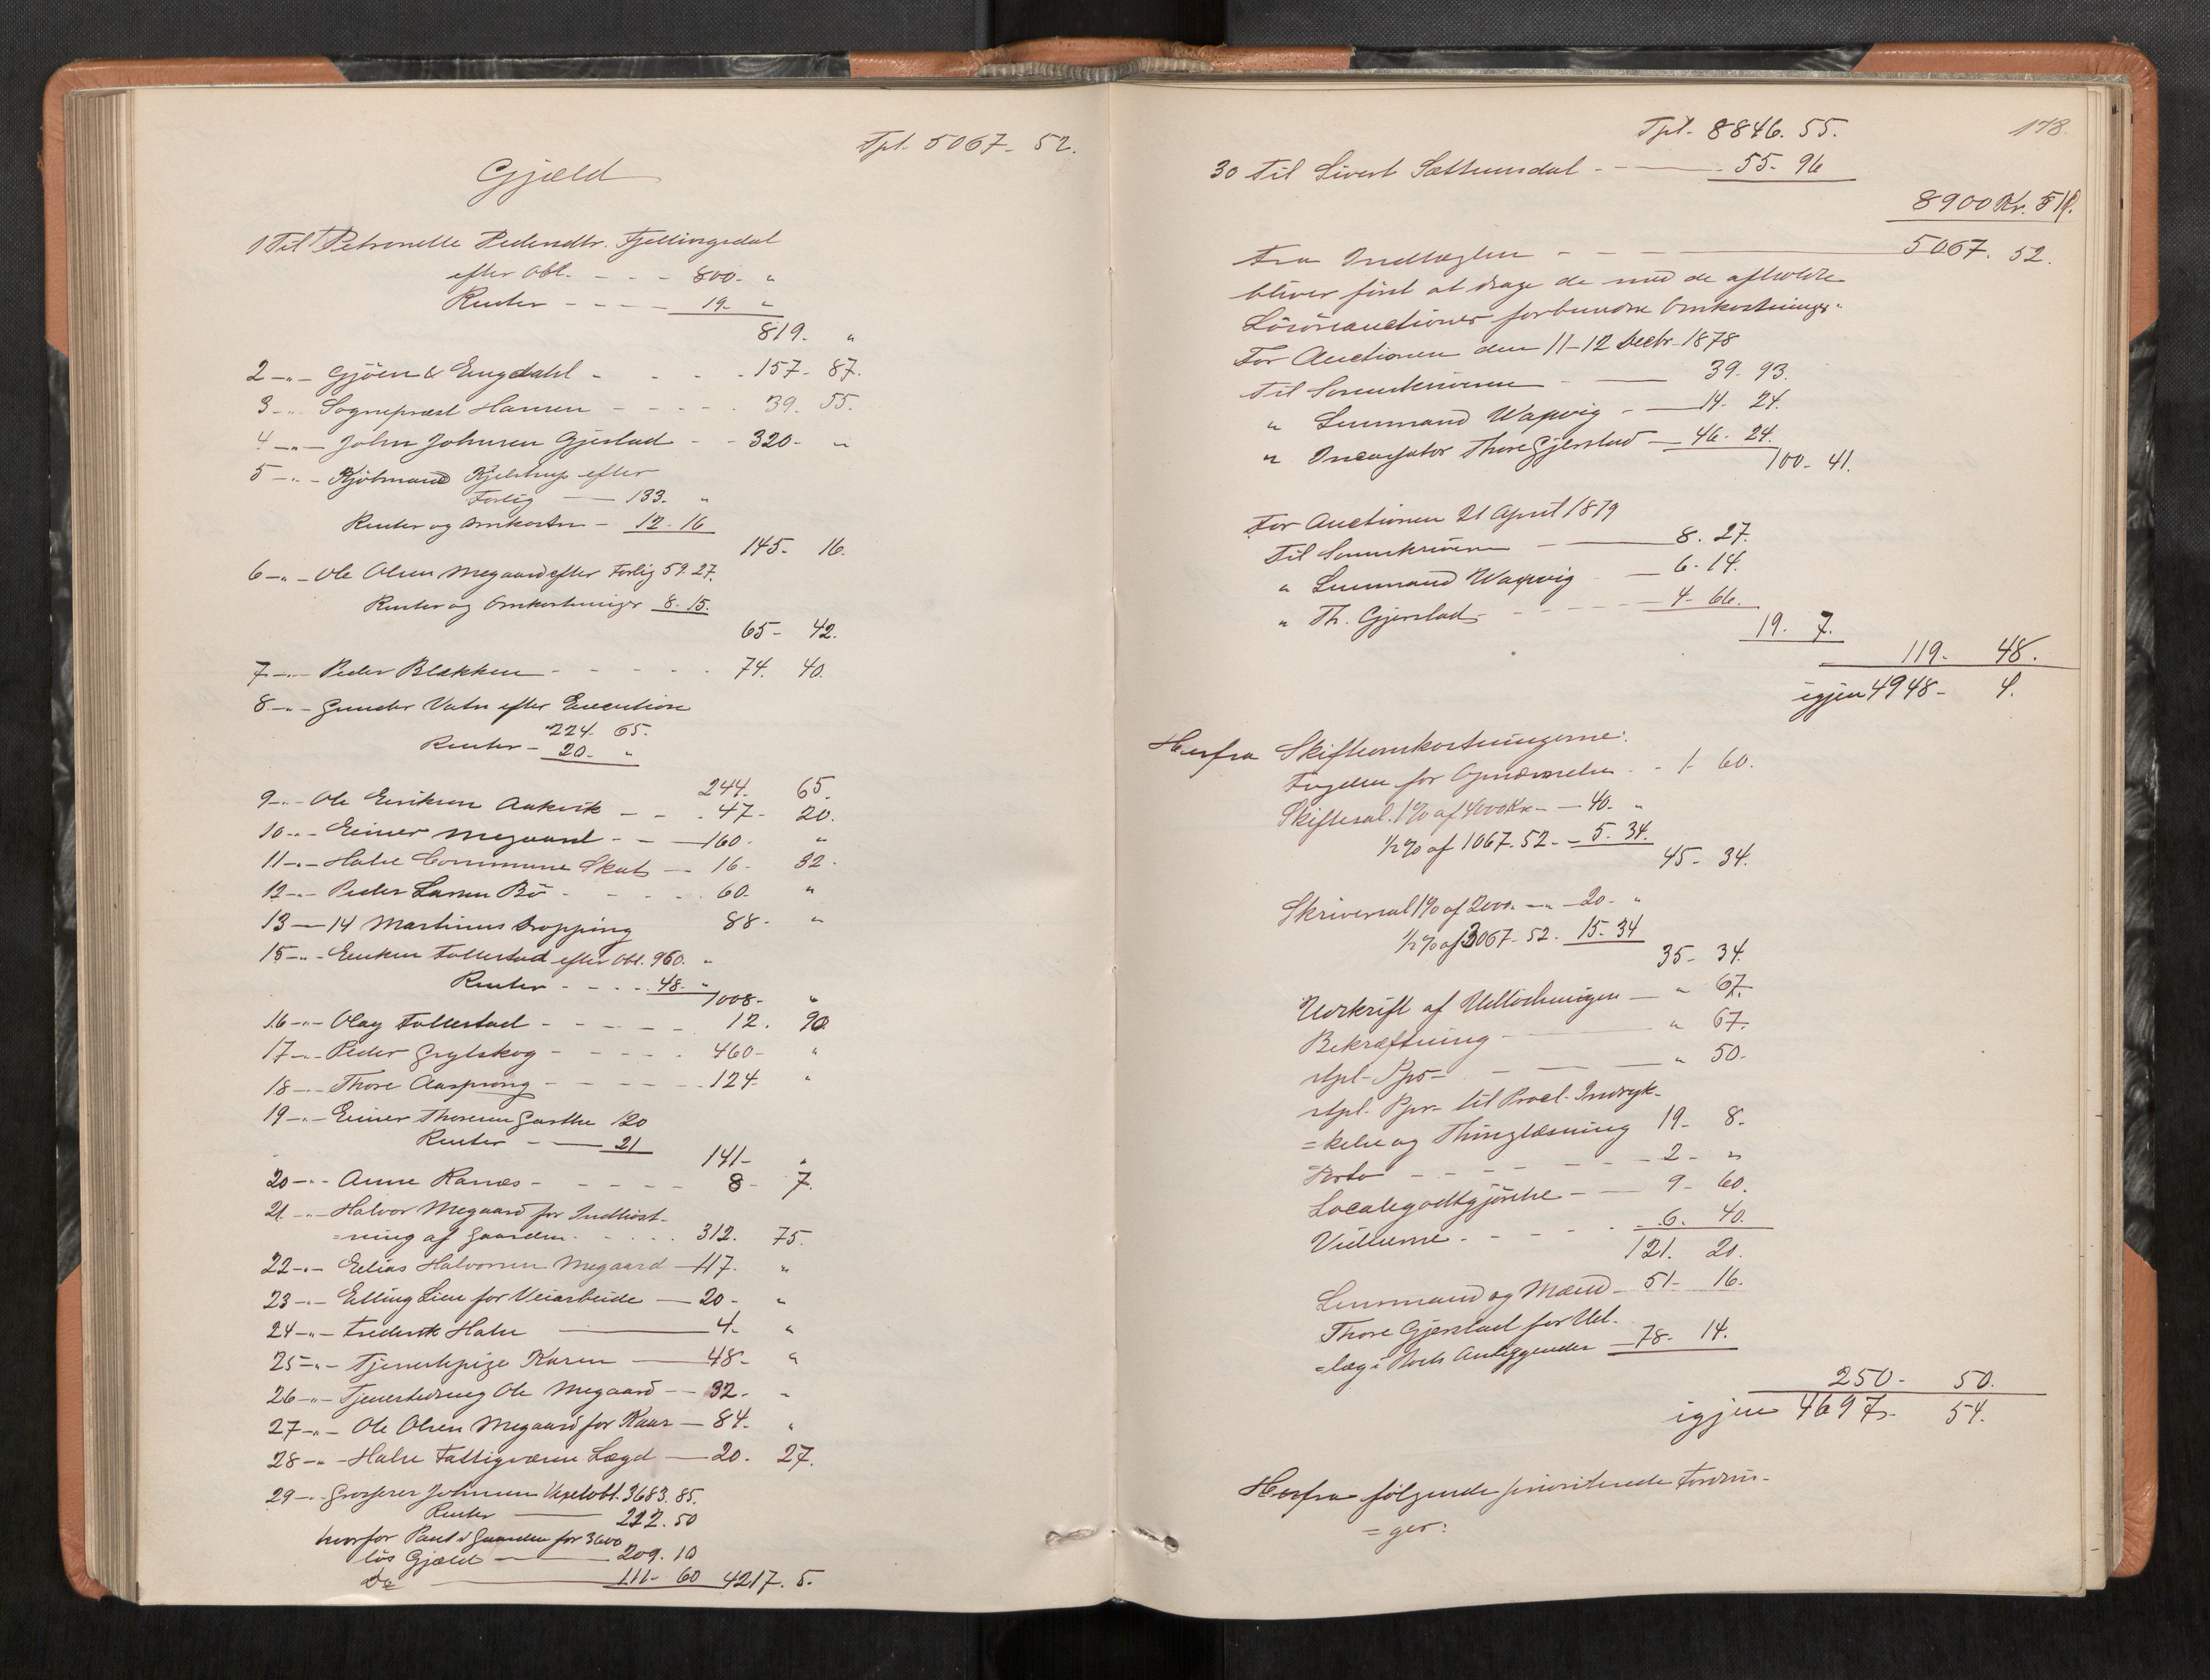 Tpt. 5067- 52.
Gjæld
1 Til Petronelle Pedersdtr. Fjellingsdal
efter Obl. - - - 800. "
Renter - - - - 19. "
819. "
2 -"- Gjöen & Engdahl - - - - 157. 87.
3 -"- Sognepræst Hansen - - - - 39. 55.
4 -"- John Johnsen Gjerstad - - 320- "
5 -"- Kjöbmand Kjelstrup efter
Forlig — 133. "
Renter og Omkostn - 12. 16
145- 16.
6 -"- Ole Olsen Megaard efter Forlig 57. 27.
Renter og Omkostninger 8. 15.
65- 42.
7 -"- Peder Blækken - - - - - 74. 40.
8 -"- Gunder Vatn efter Execution
224. 65.
Renter - 20. "
244. 65.
9 -"- Ole Eriksen Aakvik - - - 47- 20.
10 -"- Einer Megaard - - — 160. "
11 -"- Halse Commune Skat — 16- 32.
12 -"- Peder Larsen Bö - - - - 60. "
13 — 14 Martinus Dropping 88- "
15 -"- Eriken Tollestad efter Obl. 960. "
Renter - - - - 48. "
1008- "
16 -"- Olay Tollestad - - - - - 12. 90
17 -"- Peder Grytskog - - - - - 460- "
18 -"- Thore Aasprong - - - - - 124. "
19 -"- Einer Thoresen Garthe 120
Renter - — 21
141- "
20 -"- Anne Ranæs - - - - - 8- 7.
21 -"- Halvor Megaard for Indhöst-
=ning af Gaarden - - - - 312. 75.
22 -"- Elias Halvorsen Megaard — 117. "
23 -"- Elling Lien for Veiarbeide — 20- "
24 -"- Frederik Halse — 4. "
25 -"- Tjenestepige Karen — 48- "
26 -"- Tjenestedreng Ole Megaard - - 32. "
27 -"- Ole Olsen Megaard for Kaar — 84- "
28 -"- Halse Fattigvæsen Lægd — 20. 27.
29 -"- Grosserer Johnsen Vexelobl. 3683. 85.
Renter — 212. 50
hvorfor Pant i Gaarden for 3600
lös Gjæld — 209. 10
Do — 111- 60 4217. 5.
178.
Tpt- 8846. 55.
30 Til Sivert Sætheunsdal - — 55- 96
8900 Kr. 51 ø.
Fra Indtægten - - - — 5067. 52.
bliver först at drage de med de afholdte
Lösöreauctioner forbundne Omkostninger-
For Auctionen den 11-12 Decbr 1878
Til Sorenskriveren - — 39. 93.
" Lensmand Waqvig - — 14. 24.
" Incassator Thore Gjerstad — 46. 24.
100- 41.
For Auctionen 21 April 1879
Til Sorenskriveren - — 8. 27.
" Lensmand Waqvig — 6. 14.
" Th. Gjerstad - - - - - 4. 66.
19. 7.
119- 48.
igjen 4948- 4.
Herfra Skifteomkostningerne:
Fogden for Opnævnelse - - 1. 60.
Skiftesal. 1% af 4000 Kr - — 40. "
½% af 1067. 52. - 5. 34.
45- 34.
Skriversal 1% af 2000. -"- 20. "
½% af 3067- 52. 15. 34
35- 34.
Udskrift af Udlodningen — " 67.
Bekræftning - — " 67.
stpl. Ppr - — " 50.
stpl. Ppr. til Procl. Indryk-
=kelse og Thinglæsning 19- 8-
Porto - - - - - - 2- "
Localegodtgjörelse - — 9- 60.
Vidnerne - - - - 6. 40.
121. 20.
Lensmand og Mænd - 51- 16.
Thore Gjerstad for Ud-
=læg i Boets Anliggender — 78- 14.
250- 50.
igjen 4697- 54.
Herfra fölgende prioriterede Fordrin-
=ger: